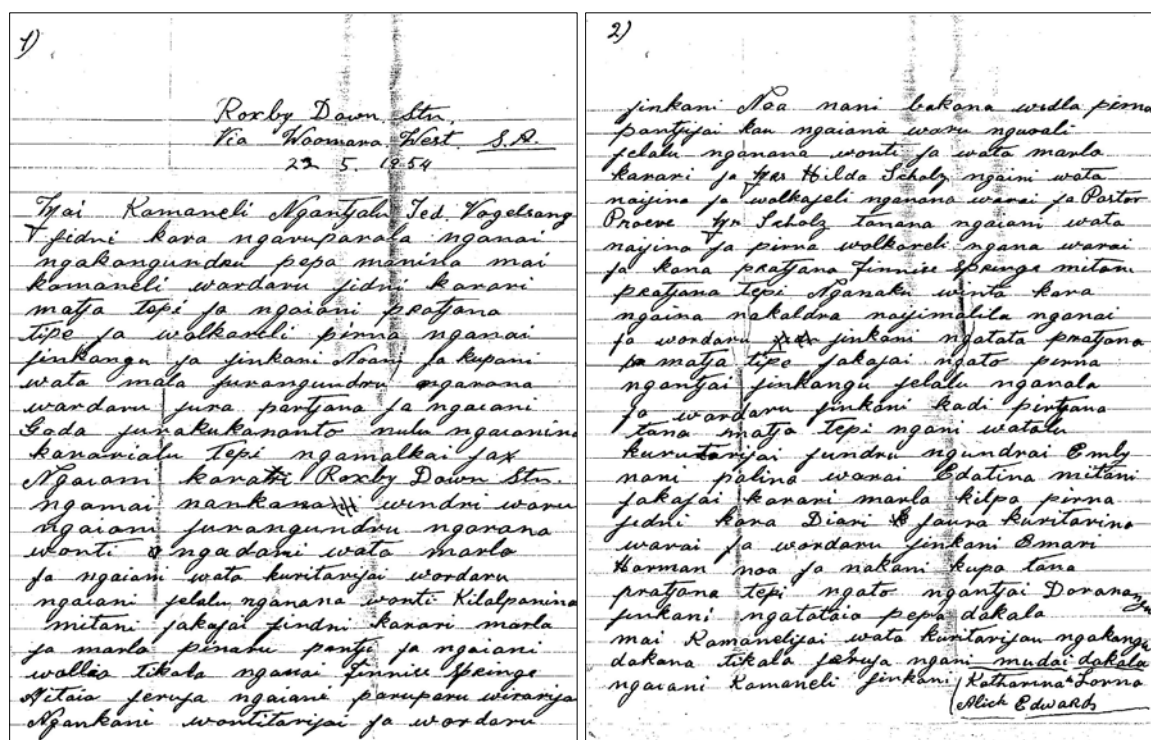 1)
Roxby Down. Stn.
Via Woomara. West. S.A.
22 5. 1954
Mai Kamaneli Ngantjalu Ted. Vogelsang
jidni kara ngaruparala nganai
ngakangundru pepa manina mai
kamaneli wardaru jidni karari
matja tepi ja ngaiani pratjana
tipe ja walkareli pirna nganai
jinkangu ja jinkani Noani ja kupani
wata mala jurangundru ngarana
wardaru jura partjana ja ngaiani
Gada jurakukananto nulu ngaianina
kanarialu tepi ngamalkai jax
Ngaiani karari Roxby Down Stn.
ngamai nankana windri waru
ngaiani jurangundru ngarana
wonti ngadani wata marla
ja ngaiani wata kuritarijai wordaru
ngaiani jelalu nganana wonti Kilalpanina
mitani jakajai jindni karari marla
ja marla pinaru pantji ja ngaiani
wollia tikala nganai Finniss Springs
Aitaia jeruja ngaiani paruparu wirarija
Ngankani wontitarijai ja wordaru
2)
jinkani Noa nani bakana widla pirna
pantjijai kau ngaiana waru ngurali
jelalu nganana wonti ja wata marla
karari ja Mrs Hilda Scholz ngaini wata
naijina ja walkajeli nganana warai ja Pastor
Proeve Mr Scholz tanana ngaiani wata
naijina ja pirna wolkareli ngana warai
ja kana pratjana Finniss Springs mitani
pratjana tepi Nganaku winta kara
ngaina nakaldra naijimalila nganai
ja wordaru jinkani ngatata pratjana
matja tipe jakajai ngato pirna
ngantjai jinkangu jelalu nganala
ja wardaru jinkani kadi pirtjana
tana matja tepi ngani watalu
kurutarijai jundru ngundrai Emly
nani palina warai Edatina mitani
jakajai karari marla kilpa pirna
jidni kara Diari jaura kuritarina
warai ja wordaru jinkani Emari
Harman noa ja nakani kupa tana
pratjana tepi ngato ngantjai
jinkani ngatataia pepa dakala
mai Kamanelijai wata kuritarijau ngakangu
dakana tikala jeruja ngani mudai dakala
ngaiani Kamaneli jinkani Katharina Lorna
Alick Edwards